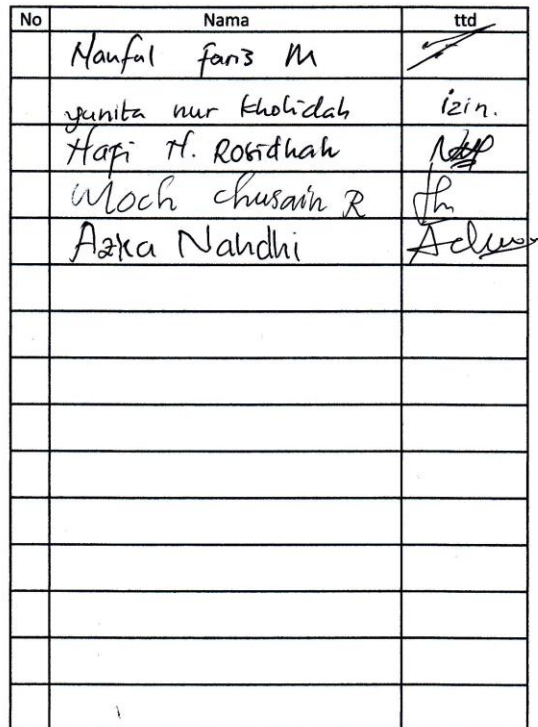 No Nama ttd
Naufal Faris M
yunita nur kholidah izin.
Hafi H. Rosidhah
Moch Chusain R
Azka Nahdhi